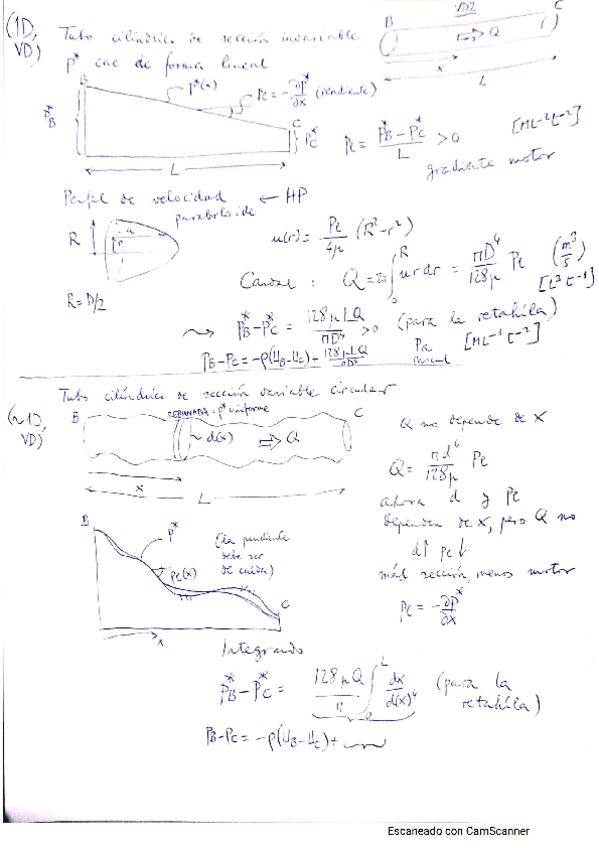 (1D, VD)
Tubo cilíndrico de sección invariable
p* cae de forma lineal
VD2
B
C
Q
x
L
B
p*(x)
Pe = -∂p*/∂x (pendiente)
p*B
C
p*C
L
Pe = (p*B - p*C)/L > 0
[ML⁻²t⁻²]
gradiente motor
Perfil de velocidad ← HP
paraboloide
R
u
r
u(r) = Pe/4μ (R² - r²)
R = D/2
Caudal : Q = 2π ∫₀ᴿ u r dr = πD⁴/128μ Pe (m³/s)
[L³t⁻¹]
p*B - p*C = 128μLQ/πD⁴ > 0 (para la retahíla)
PB - PC = -ρ(UB - UC) + 128μLQ/πD⁴
Pa
[ML⁻¹t⁻²]
Tubo cilíndrico de sección variable circular
(~1D, VD)
B
REBANADA: p* uniforme
C
~ d(x)
Q
x
L
Q no depende de x
Q = πd⁴/128μ Pe
ahora d y Pe
dependen de x, pero Q no
d↑ Pe↓
más sección, menos motor
Pe = -∂p*/∂x
B
p*
(la pendiente
debe ser
de caída)
Pe(x)
C
x
Integrando
p*B - p*C = 128μQ/π ∫₀ᴸ dx/d(x)⁴ (para la retahíla)
PB - PC = -ρ(UB - UC) +
Escaneado con CamScanner